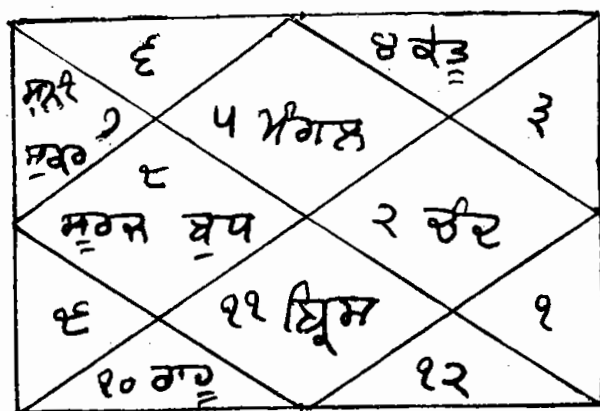 ੬
੪ ਕੇਤੂ
ਸ਼ਨੀ
੭
ਸ਼ੁਕਰ
੫ ਮੰਗਲ
੩
੮
ਸੂਰਜ ਬੁਧ
੨ ਚੰਦ
੯
੧੧ ਬ੍ਰਿਸ
੧
੧੦ ਰਾਹੂ
੧੨